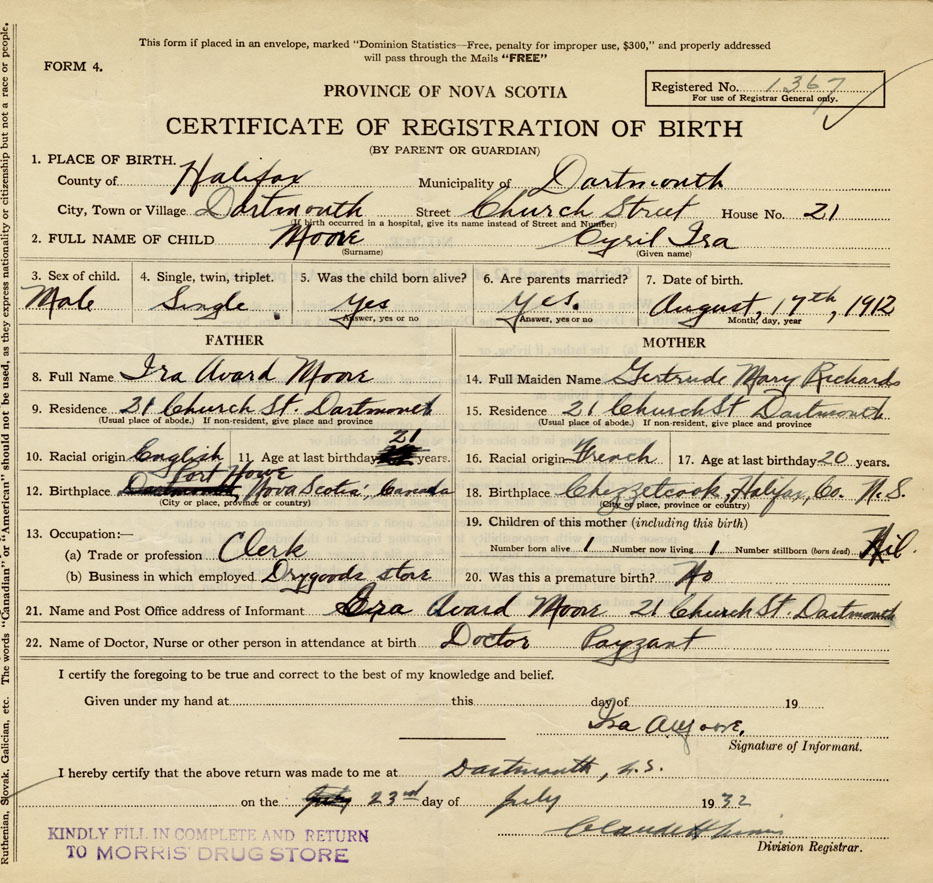 This form if placed in an envelope, marked "Dominion Statistics—Free, penalty for improper use, $300," and properly addressed
will pass through the Mails "FREE"
FORM 4.
Registered No. 1367
For use of Registrar General only.
PROVINCE OF NOVA SCOTIA
CERTIFICATE OF REGISTRATION OF BIRTH
(BY PARENT OR GUARDIAN)
1. PLACE OF BIRTH.
County of Halifax Municipality of Dartmouth
City, Town or Village Dartmouth Street Church Street House No. 21
(If birth occurred in a hospital, give its name instead of Street and Number)
2. FULL NAME OF CHILD Moore Cyril Ira
(Surname) (Given name)
3. Sex of child. 4. Single, twin, triplet. 5. Was the child born alive? 6. Are parents married? 7. Date of birth.
Male Single Yes Yes. August, 17th, 1912
Answer, yes or no Answer, yes or no Month, day, year
FATHER MOTHER
8. Full Name Ira Avard Moore 14. Full Maiden Name Gertrude Mary Richards
9. Residence 21 Church St. Dartmouth 15. Residence 21 Church St Dartmouth
(Usual place of abode.) If non-resident, give place and province (Usual place of abode.) If non-resident, give place and province
10. Racial origin English 11. Age at last birthday 21 years. 16. Racial origin French 17. Age at last birthday 20 years.
12. Birthplace Dartmouth Port Howe Nova Scotia, Canada 18. Birthplace Chezzetcook, Halifax, Co. N.S.
(City or place, province or country) (City or place, province or country)
13. Occupation:— 19. Children of this mother (including this birth)
(a) Trade or profession Clerk Number born alive 1 Number now living 1 Number stillborn (born dead) Nil.
(b) Business in which employed Drygoods store 20. Was this a premature birth? No
21. Name and Post Office address of Informant Ira Avard Moore 21 Church St. Dartmouth
22. Name of Doctor, Nurse or other person in attendance at birth Doctor Payzant
I certify the foregoing to be true and correct to the best of my knowledge and belief.
Given under my hand at this day of 19
Ira A Moore,
Signature of Informant.
I hereby certify that the above return was made to me at Dartmouth, N.S.
on the July 23rd day of July 1932
Division Registrar.
KINDLY FILL IN COMPLETE AND RETURN
TO MORRIS' DRUG STORE
Ruthenian, Slovak, Galician, etc. The words "Canadian" or "American" should not be used, as they express nationality or citizenship but not a race or people.